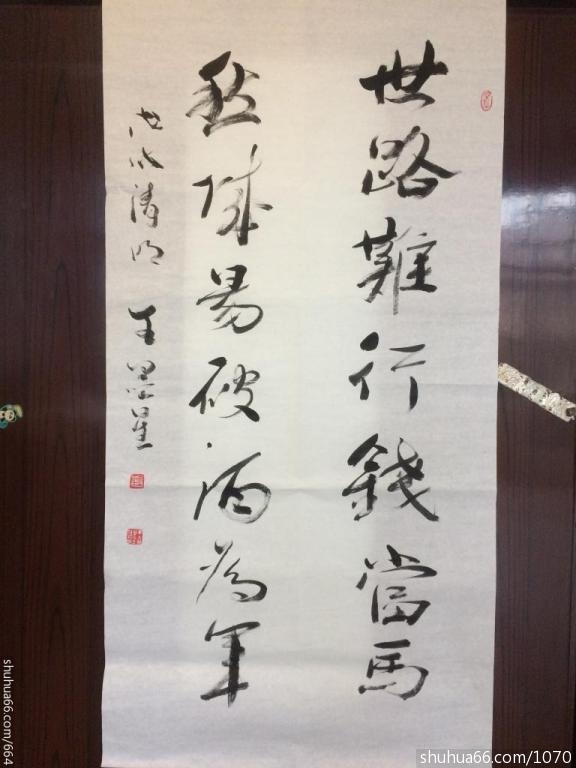 世路難行錢當馬
愁城易破酒為軍
戊戌清明 王墨星
shuhua66.com/664
shuhua66.com/1070